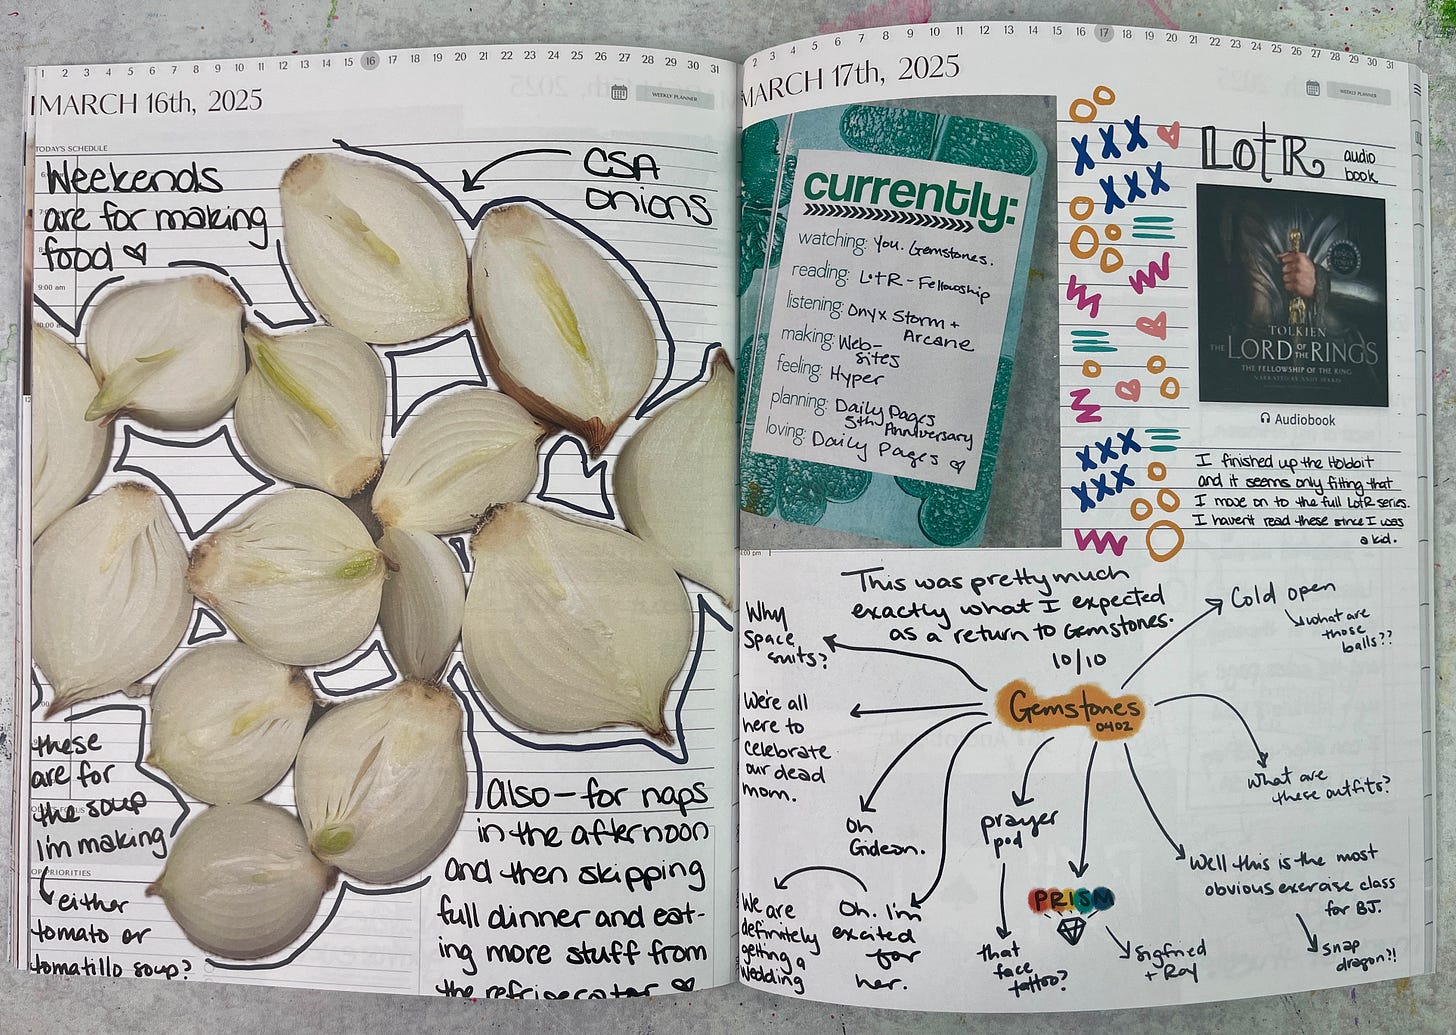 1 2 3 4 5 6 7 8 9 10 11 12 13 14 15 16 17 18 19 20 21 22 23 24 25 26 27 28 29 30 31
MARCH 16th, 2025
WEEKLY PLANNER
TODAY'S SCHEDULE
Weekends
are for making
food
CSA
onions
9:00 am
10:00 a
these
are for
the soup
I'm making
OP PRIORITIES
either
tomato or
tomatillo soup?
Also - for naps
in the afternoon
and then skipping
full dinner and eat-
ing more stuff from
the refrigerator
2 3 4 5 6 7 8 9 10 11 12 13 14 15 16 17 18 19 20 21 22 23 24 25 26 27 28 29 30 31
MARCH 17th, 2025
WEEKLY PLANNER
currently:
watching: You. Gemstones.
reading: LotR - Fellowship
listening: Onyx Storm +
Arcane
making: Web-
sites
feeling: Hyper
planning: Daily Pages
5th Anniversary
loving: Daily Pages
XXX
XXX
XXX
XXX
LotR audio
book
TOLKIEN
THE LORD OF THE RINGS
THE FELLOWSHIP OF THE RING
NARRATED BY ANDY SERKIS
Audiobook
I finished up the Hobbit
and it seems only fitting that
I move on to the full LotR series.
I haven't read these since I was
a kid.
This was pretty much
exactly what I expected
as a return to Gemstones.
10/10
Gemstones
0402
Why
Space
suits?
We're all
here to
celebrate
our dead
mom.
Oh
Gideon.
Oh. I'm
excited
for
her.
We are
definitely
getting a
wedding
prayer
pod
that
face
tattoo?
PRISM
Sigfried
+ Roy
Well this is the most
obvious exercise class
for BJ.
snap
dragon?!
What are
these outfits?
Cold open
what are
those
balls??